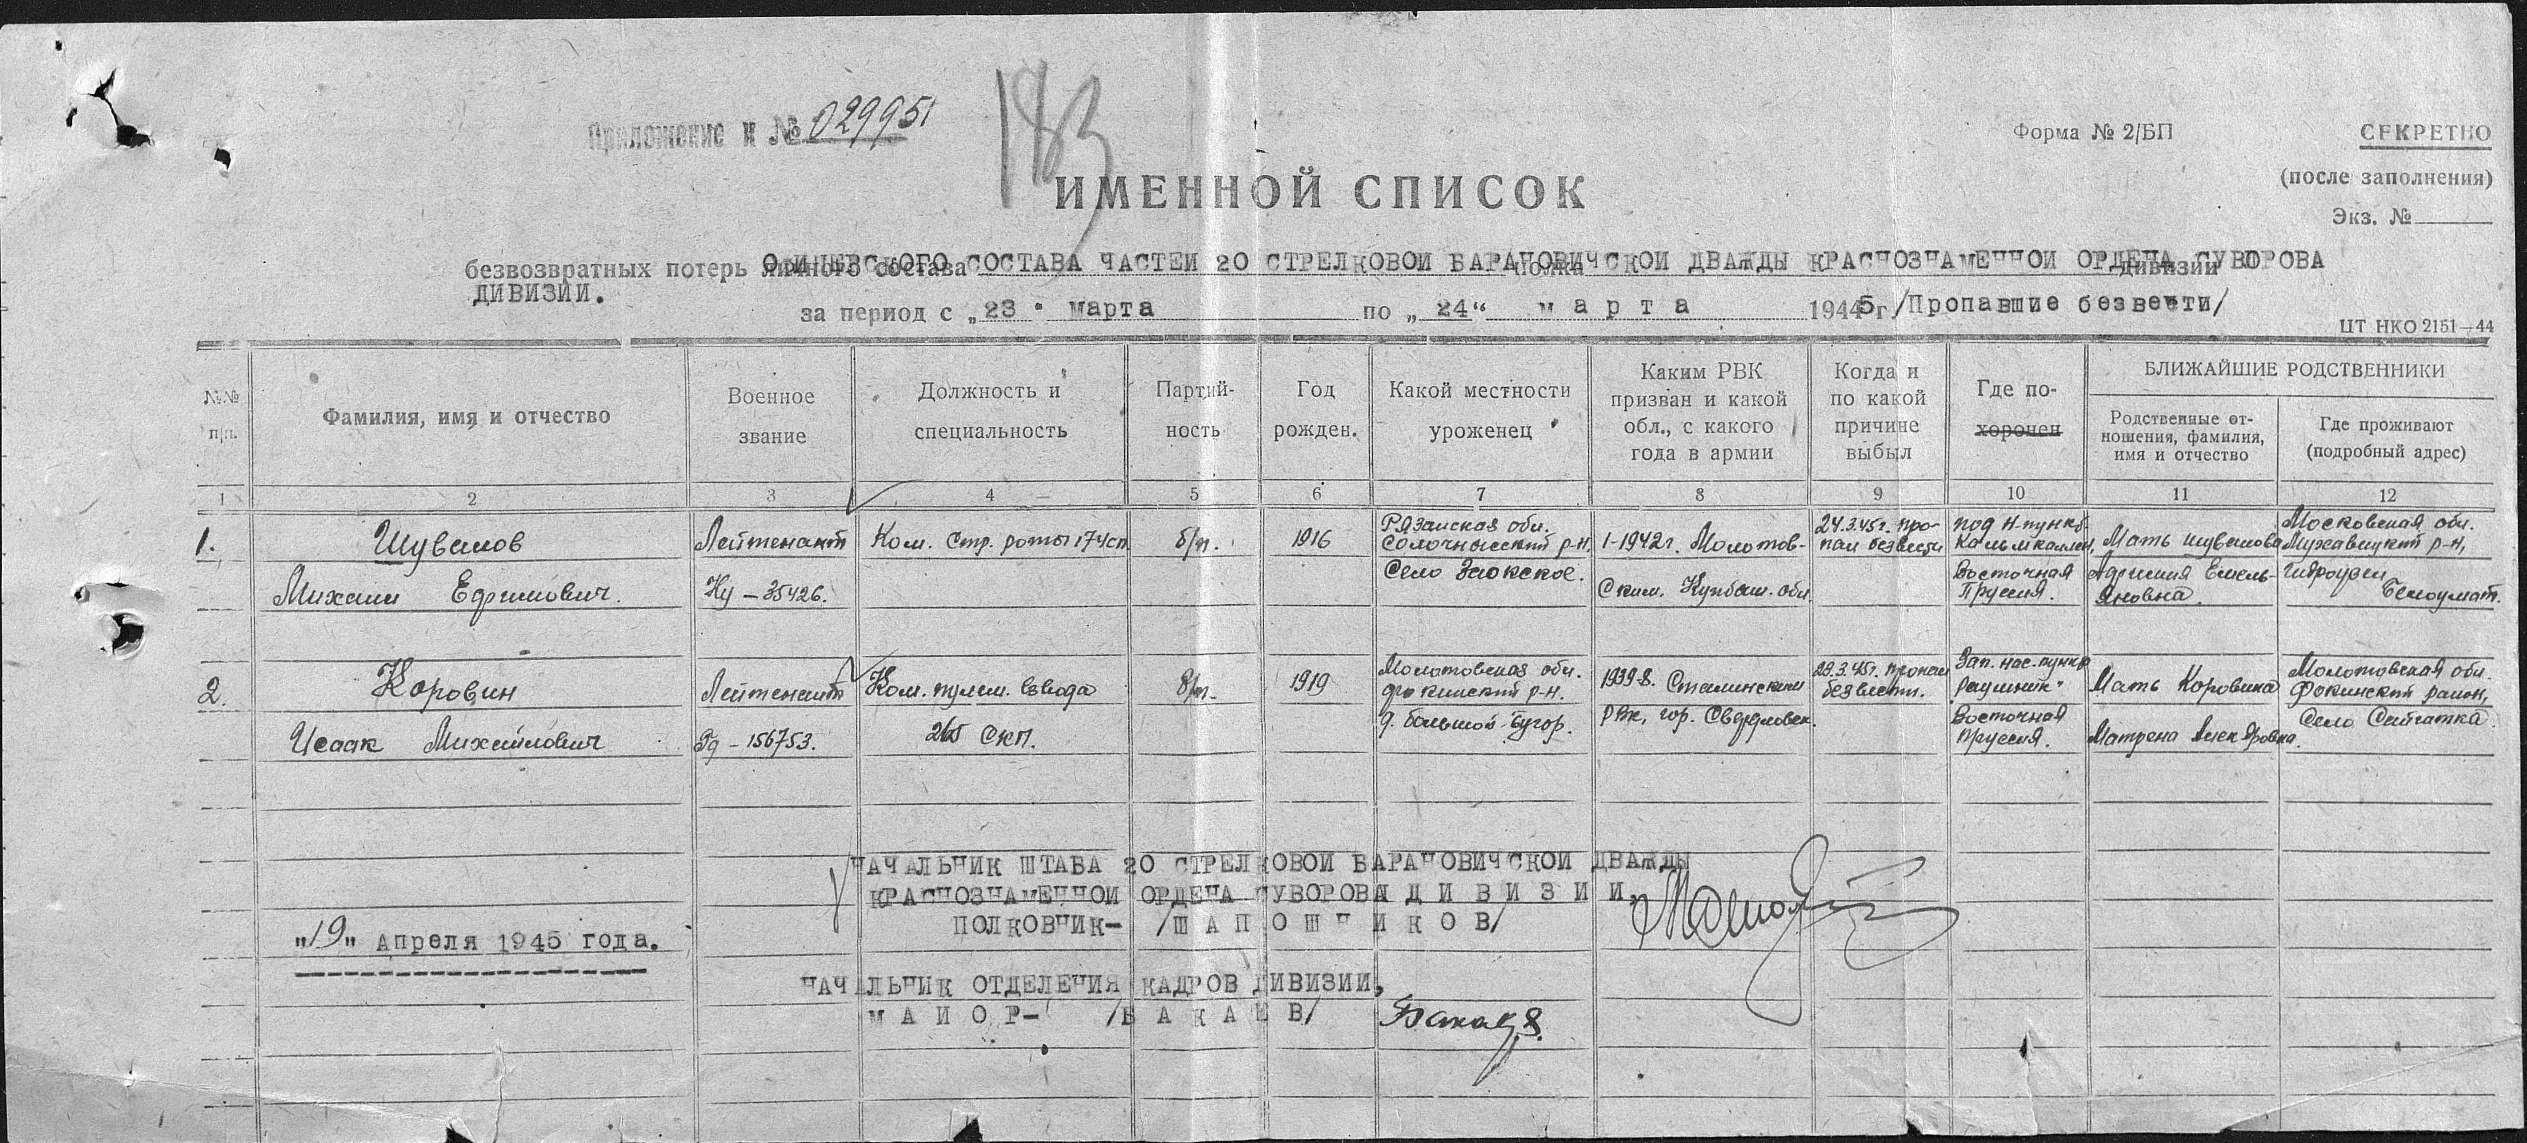 Приложение к № 029951
183
Форма № 2/БП
СЕКРЕТНО
(после заполнения)
Экз. №
ИМЕННОЙ СПИСОК
безвозвратных потерь личного состава ОФИЦЕРСКОГО СОСТАВА ЧАСТЕЙ 20 СТРЕЛКОВОЙ БАРАНОВИЧСКОЙ ДВАЖДЫ КРАСНОЗНАМЕННОЙ ОРДЕНА СУВОРОВА
полка дивизии
ДИВИЗИИ.
за период с „23" марта по „24" марта 19445 г /Пропавшие безвести/
ЦТ НКО 2151—44
№№ п/п.
Фамилия, имя и отчество
Военное звание
Должность и специальность
Партий-ность
Год рожден.
Какой местности уроженец
Каким РВК призван и какой обл., с какого года в армии
Когда и по какой причине выбыл
Где по-хоронен
БЛИЖАЙШИЕ РОДСТВЕННИКИ
Родственные от-ношения, фамилия, имя и отчество
Где проживают (подробный адрес)
1 2 3 4 5 6 7 8 9 10 11 12
1. Шувалов Лейтенант Ком. Стр. роты 174сп б/п. 1916 Рязанская обл. Солочнинский р-н, 1-1942г. Молотов- 24.3.45г. про-пал безвести под н-пункт. Мать Шувалова Московская обл.
Михаил Ефимович. Ну-35426. Село Заокское. Ским. Куйбыш. обл. Восточная Пруссия. Емель-яновна. Белоумат.
2. Коровин Лейтенант Ком. пулем. взвода б/п. 1919 Молотовская обл. Фокинский р-н. 1939-8. Сталинским 23.3.45г. пропал безвести. Зап. нас. пункт Раушник" Мать Коровина Молотовская обл. Фокинский район,
Исаак Михайлович Гд-156753. 265 скп. д. большой Бугор. РВК, гор. Свердловск. Восточная Пруссия. Матрена Алек яровна. Село Сайгатка.
НАЧАЛЬНИК ШТАБА 20 СТРЕЛКОВОЙ БАРАНОВИЧСКОЙ ДВАЖДЫ
КРАСНОЗНАМЕННОЙ ОРДЕНА СУВОРОВА ДИВИЗИИ,
ПОЛКОВНИК- /ШАПОШНИКОВ/
„19" Апреля 1945 года.
НАЧАЛЬНИК ОТДЕЛЕНИЯ КАДРОВ ДИВИЗИИ,
МАЙОР- /БАКАЕВ/